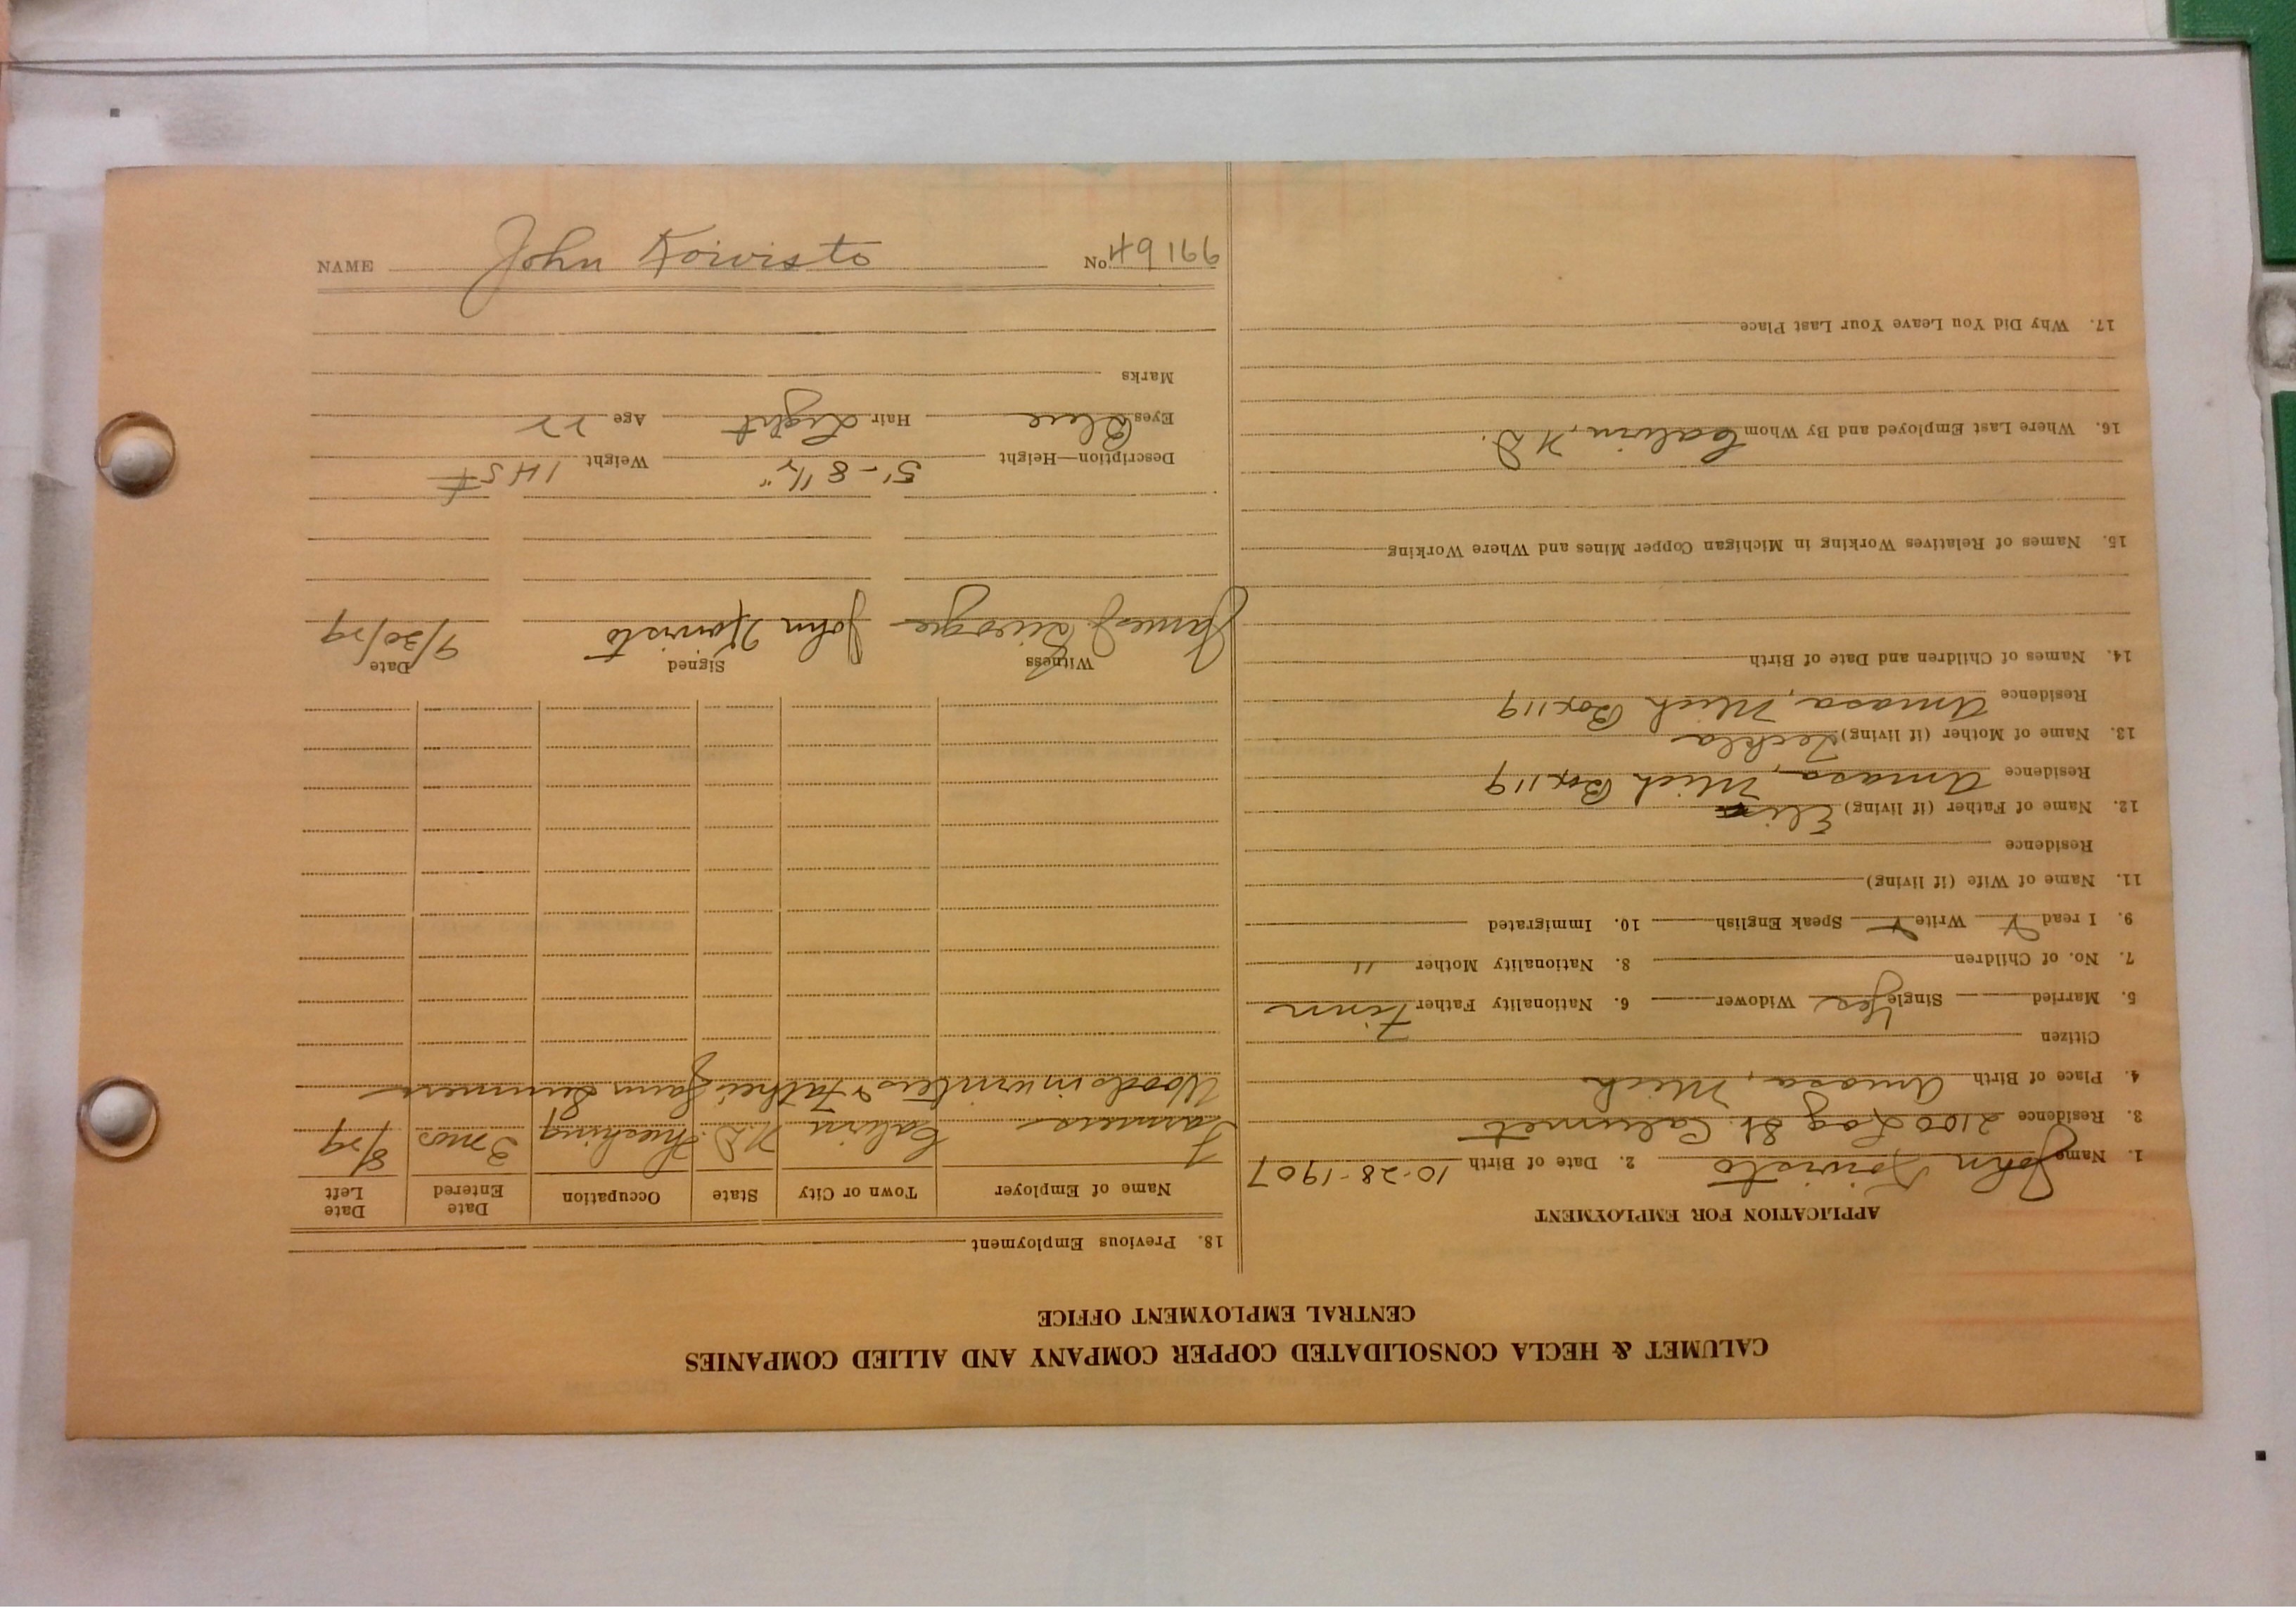 CALUMET & HECLA CONSOLIDATED COPPER COMPANY AND ALLIED COMPANIES
CENTRAL EMPLOYMENT OFFICE
APPLICATION FOR EMPLOYMENT
1. Name John Koivisto 2. Date of Birth 10-28-1907
3. Residence 2100 Log St. Calumet
4. Place of Birth Amasa, Mich
Citizen
5. Married Single Yes Widower 6. Nationality Father Finn
7. No. of Children 8. Nationality Mother "
9. I read Y Write Y Speak English 10. Immigrated
11. Name of Wife (if living)
Residence
12. Name of Father (if living)
Residence Amasa, Mich Box 119
13. Name of Mother (if living) Teckla
Residence Amasa, Mich Box 119
14. Names of Children and Date of Birth
15. Names of Relatives Working in Michigan Copper Mines and Where Working
16. Where Last Employed and By Whom Calvin, N.D.
17. Why Did You Leave Your Last Place
18. Previous Employment
Name of Employer Town or City State Occupation Date Entered Date Left
Farmers Calvin N.D. Threshing 3 mos 8/29
Woods in winters & Father's farm Summers
Witness Signed Date
James John Koivisto 9/30/29
Description—Height 5'-8 1/2" Weight 145#
Eyes Blue Hair Light Age 22
Marks
NAME John Koivisto No. 49166